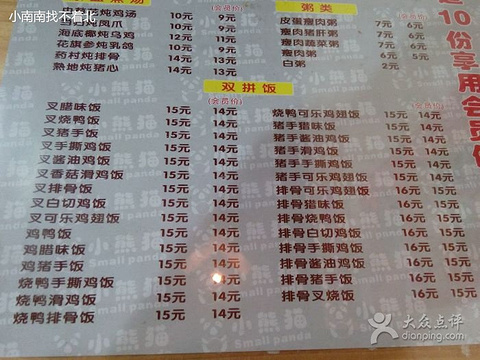 小南南找不着北
(会员价)
炖鸡汤 10元 9元
炖凤爪 10元 9元
海底椰炖乌鸡 12元 11元
花旗参炖乳鸽 10元 9元
药村炖排骨 14元 13元
熟地炖猪心 14元 13元
粥类
(会员价)
皮蛋瘦肉粥 7元 6元
瘦肉猪肝粥 7元 6元
瘦肉蔬菜粥 7元 6元
白粥 2元 2元
10份享用会员
双拼饭
(会员价)
叉腊味饭 15元 14元
叉烧鸭饭 15元 14元
叉猪手饭 15元 14元
叉手撕鸡饭 15元 14元
叉酱油鸡饭 15元 14元
叉香菇滑鸡饭 15元 14元
叉排骨饭 15元 14元
叉白切鸡饭 15元 14元
叉可乐鸡翅饭 15元 14元
鸡鸭饭 15元 14元
鸡腊味饭 15元 14元
鸡猪手饭 15元 14元
烧鸭手撕鸡饭 15元 14元
烧鸭滑鸡饭 15元 14元
烧鸭排骨饭 15元 14元
(会员价)
烧鸭可乐鸡翅饭 15元 14元
猪手猎味饭 15元 14元
猪手酱油鸡饭 15元 14元
猪手滑鸡饭 15元 14元
猪手手撕鸡饭 15元 14元
猪手可乐鸡翅饭 15元 14元
排骨可乐鸡翅饭 16元 15元
排骨猎味饭 16元 15元
排骨烧鸭饭 16元 15元
排骨白切鸡饭 16元 15元
排骨手撕鸡饭 16元 15元
排骨酱油鸡饭 16元 15元
排骨猪手饭 16元 15元
排骨叉烧饭 16元 15元
小熊猫
Small panda
大众点评
dianping.com